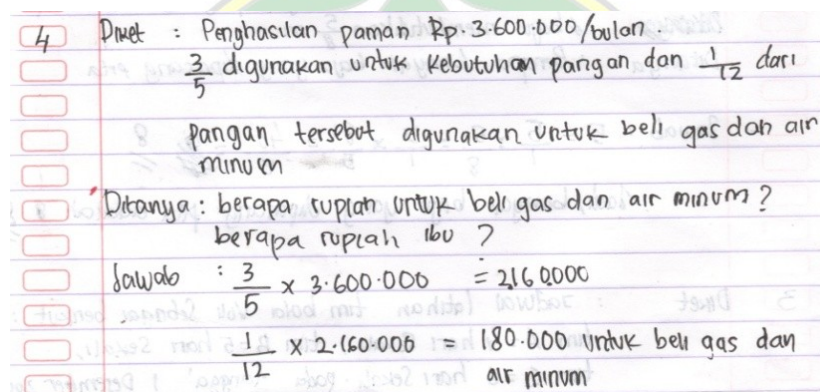 4 Diket : Penghasilan paman Rp. 3.600.000/bulan
3/5 digunakan untuk kebutuhan pangan dan 1/12 dari
pangan tersebut digunakan untuk beli gas dan air
minum
Ditanya : berapa rupiah untuk beli gas dan air minum?
berapa rupiah ibu ?
Jawab : 3/5 x 3.600.000 = 2.160.000
1/12 x 2.160.000 = 180.000 untuk beli gas dan
air minum